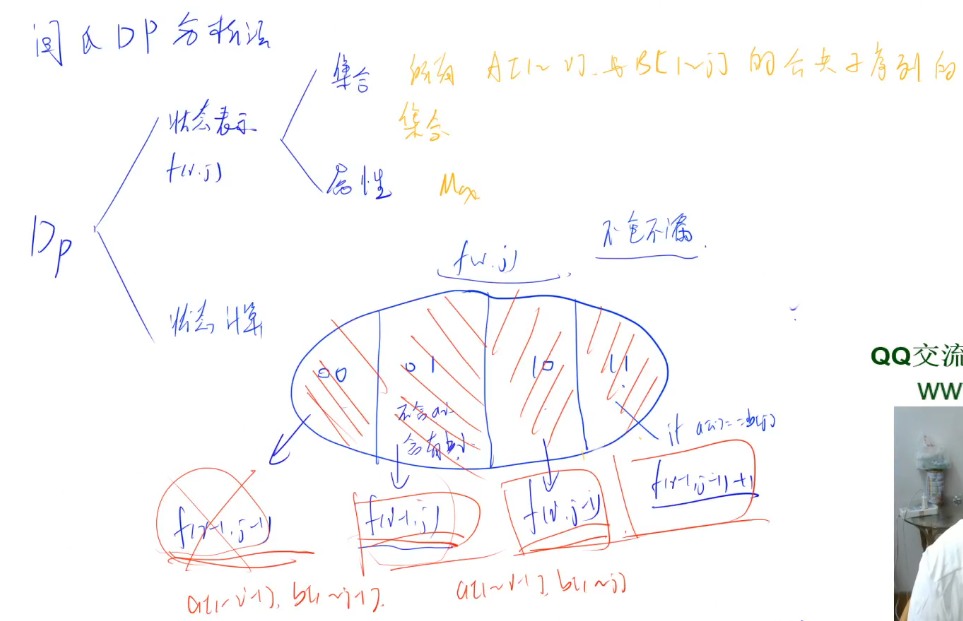 闫氏DP分析法
DP
状态表示
f(i,j)
集合 所有 A[1~i]与B[1~j]的公共子序列的
集合
属性 Max
状态计算
f(i,j)
不包不漏.
00 01 10 11
不含a[i]
含有b[j]
if a[i]==b[j]
f(i-1,j-1)
f(i-1,j)
f(i,j-1)
f(i-1,j-1)+1
a[1~i-1], b[1~j-1].
a[1~i-1], b[1~j]
QQ交流
WW